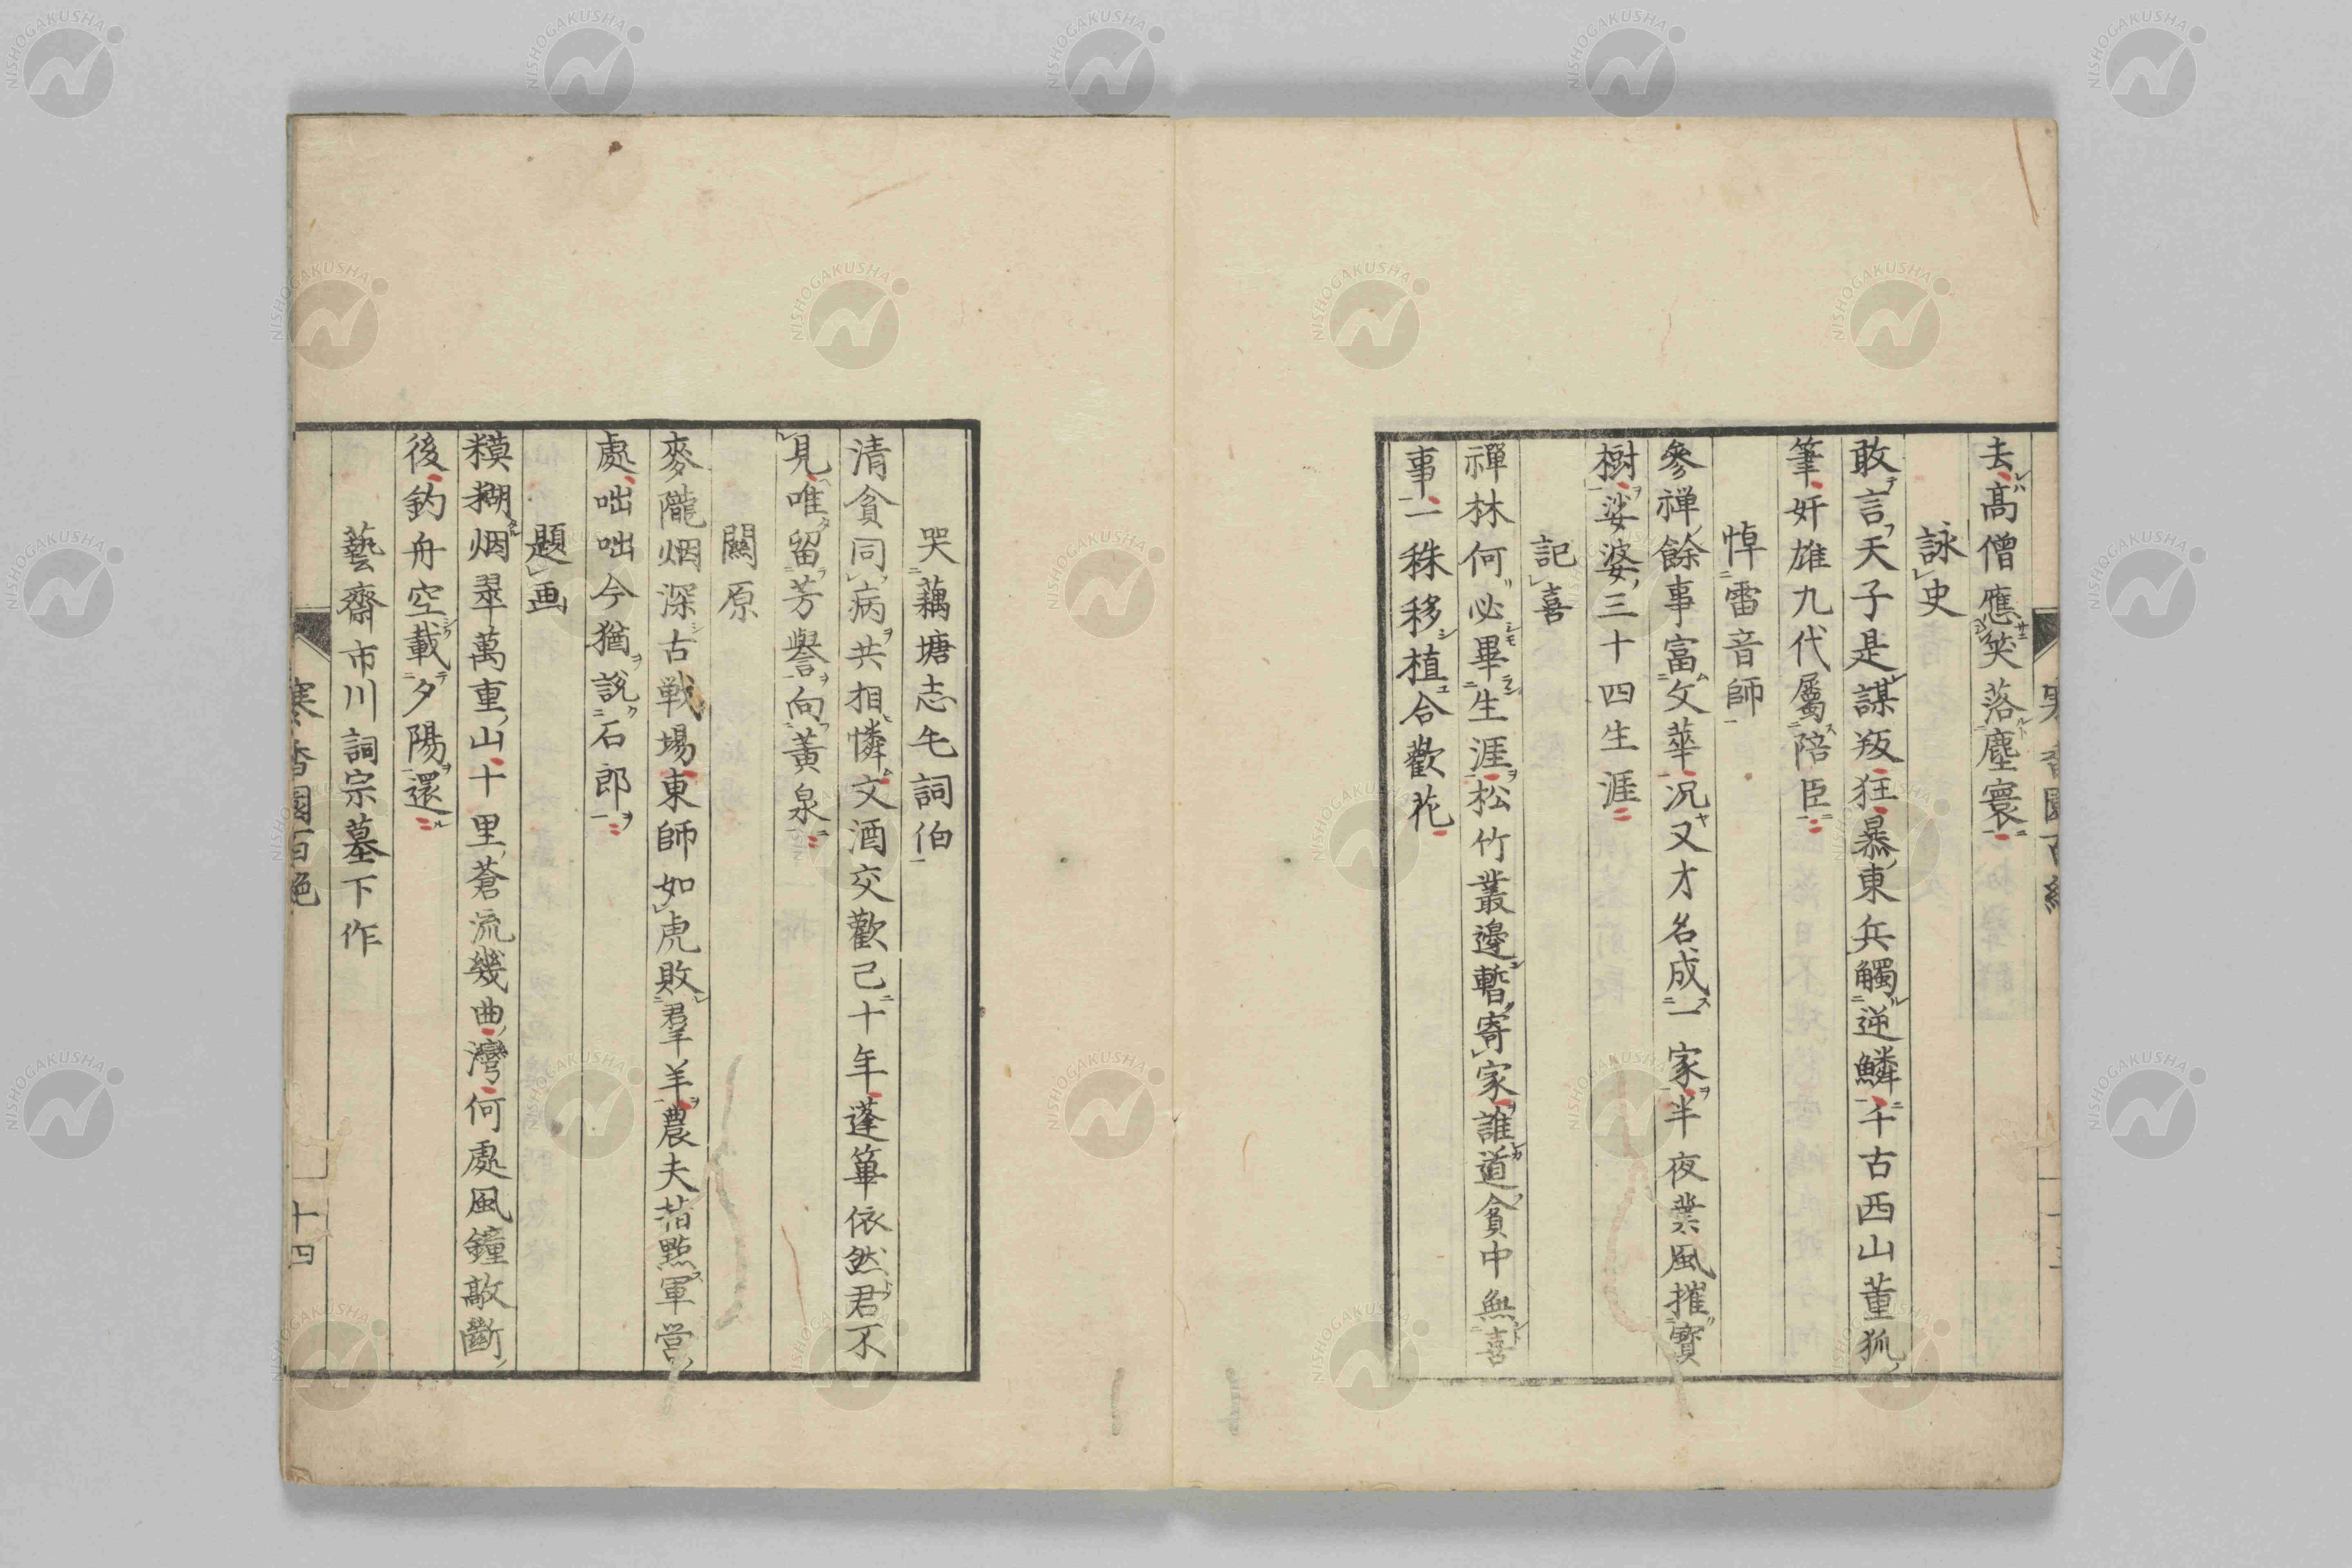 去高僧應笑落塵寰
詠史
敢言天子是謀叛狂暴東兵觸逆鱗千古西山董狐
筆奸雄九代屬陪臣
悼雷音師
參禅餘事富文華况又才名成一家半夜業風摧寶
樹娑婆三十四生涯
記喜
禪林何必畢生涯松竹叢邊暫寄家誰道貧中無喜
事一株移植合歡花
哭藕塘志毛詞伯
清貪同病共相憐文酒交歡已十年蓬篳依然君不
見唯留芳譽向黃泉
關原
麥隴烟深古戦場東師如虎敗羣羊農夫指點軍営
處咄咄今猶說石郎
題画
糢糊烟翠萬重山十里蒼流幾曲灣何處風鐘敲斷
後釣舟空載夕陽還
藝齋市川詞宗墓下作
寒香園百絶
十四
NISHOGAKUSHA